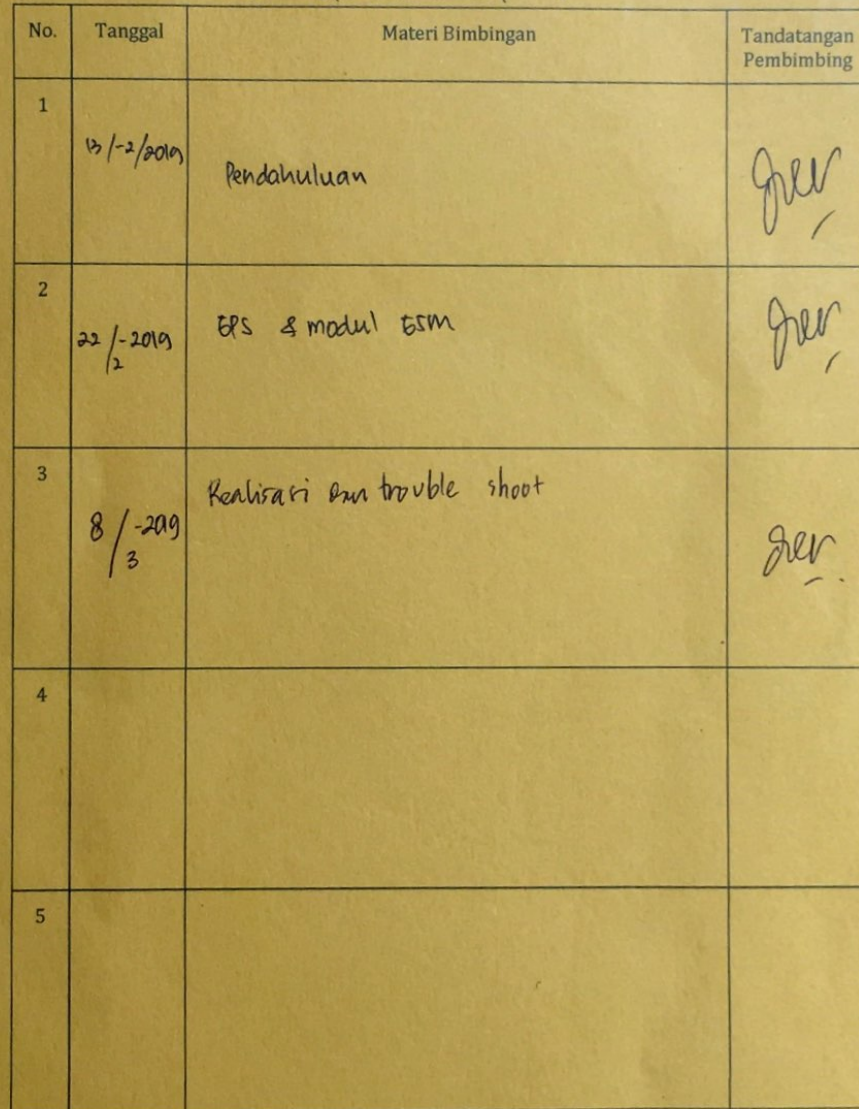 No. Tanggal Materi Bimbingan Tandatangan
Pembimbing
1
13/-2/2019
Pendahuluan
2
22/-2019
2
&modul
3
Realisasi dan trouble shoot
8/-2019
3
4
5